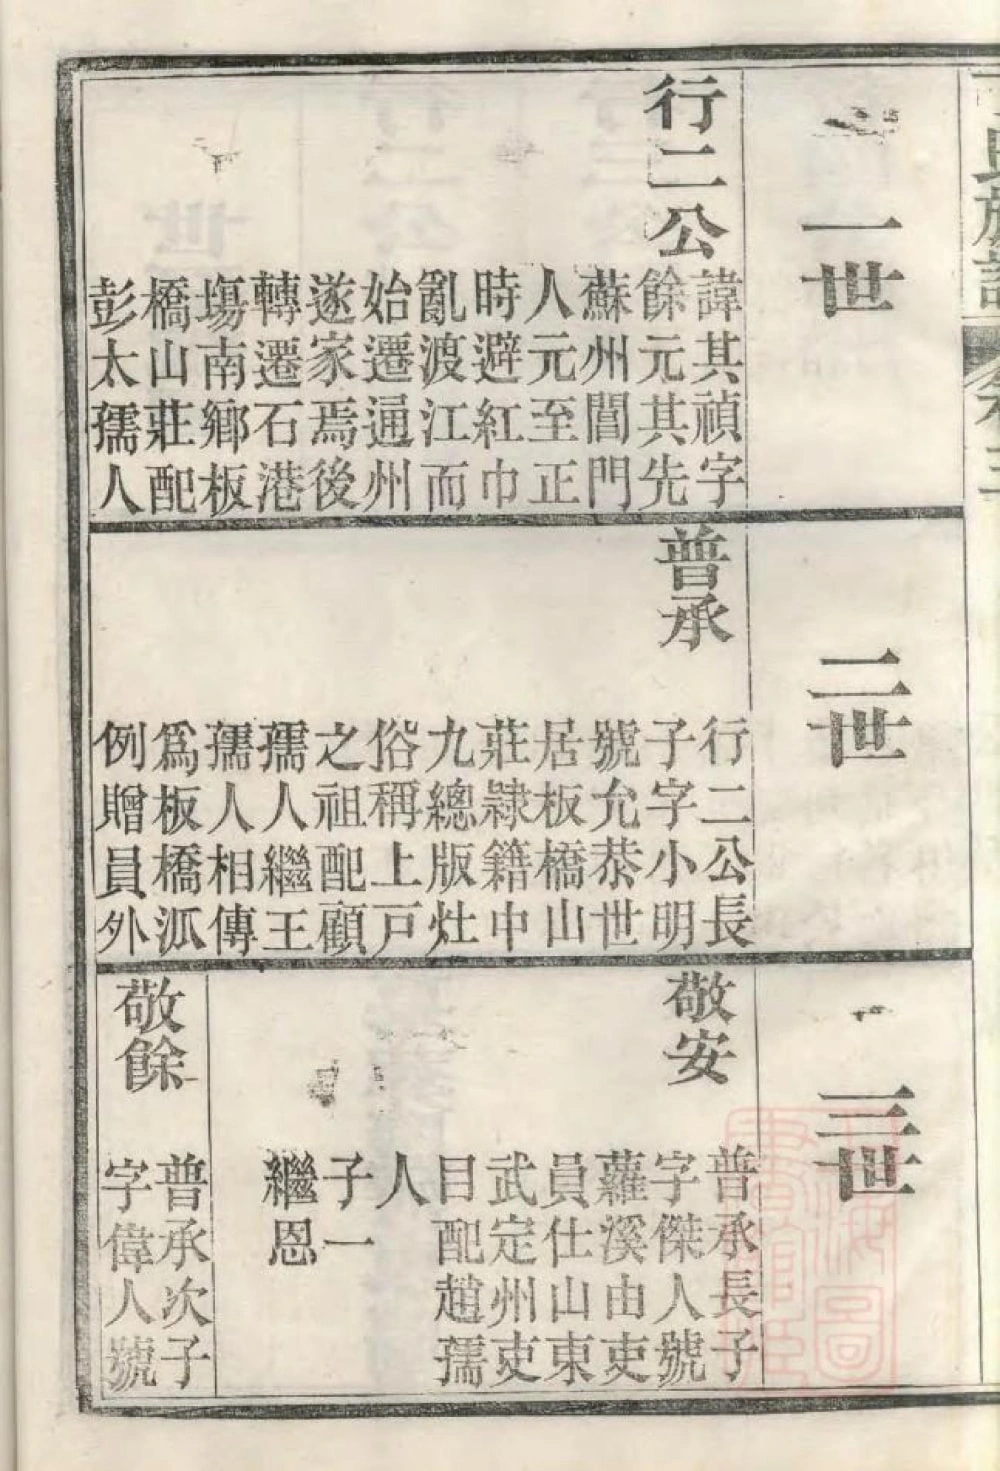 一世
行二公
諱其禎字
餘元其先
蘇州閶門
人元至正
時避紅巾
亂渡江而
始遷通州
遂家焉後
轉遷石港
場南鄉板
橋山莊配
彭太孺人
二世
普承
行二公長
子字小明
號允恭世
居板橋山
莊隸籍中
九總版灶
俗稱上戸
之祖配顧
孺人繼王
孺人相傳
為板橋派
例贈員外
三世
敬安
普承長子
字傑人號
蘿溪由吏
員仕山東
武定州吏
目配趙孺
人
子一
繼恩
敬餘
普承次子
字偉人號